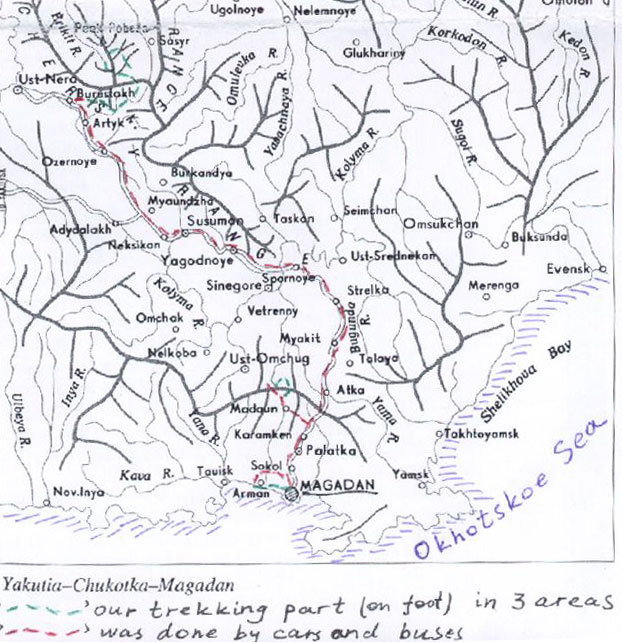 Ugolnoye
Nelemnoye
Omolon
Peak Pobeda
Sasyr
RANGE
Omulevka R.
Glukhariny
Korkodon R.
Kedon R.
Ust-Nera
Burustakh
Artyk
Yasachnaya R.
Kolyma R.
Sugoi R.
Ozernoye
Burkandya
RANGE
Myaundzha
Susuman
Taskan
Seimchan
Omsukchan
Buksunda
Adydalakh
Neksikan
Yagodnoye
Ust-Srednekan
Evensk
Spornoye
Sinegore
Strelka
Merenga
Kolyma R.
Vetrenny
Omchak
Myakit
Nelkoba
Ust-Omchug
Talaya
Shelikhova Bay
Inya R.
Atka
Madaun
Yama R.
Ulbeya R.
Yana R.
Karamken
Takhtoyamsk
Palatka
Kava R.
Tauisk
Sokol
Yamsk
Arman
MAGADAN
Nov.Inya
Okhotskoe Sea
Yakutia–Chukotka–Magadan
our trekking part (on foot) in 3 areas
was done by cars and buses